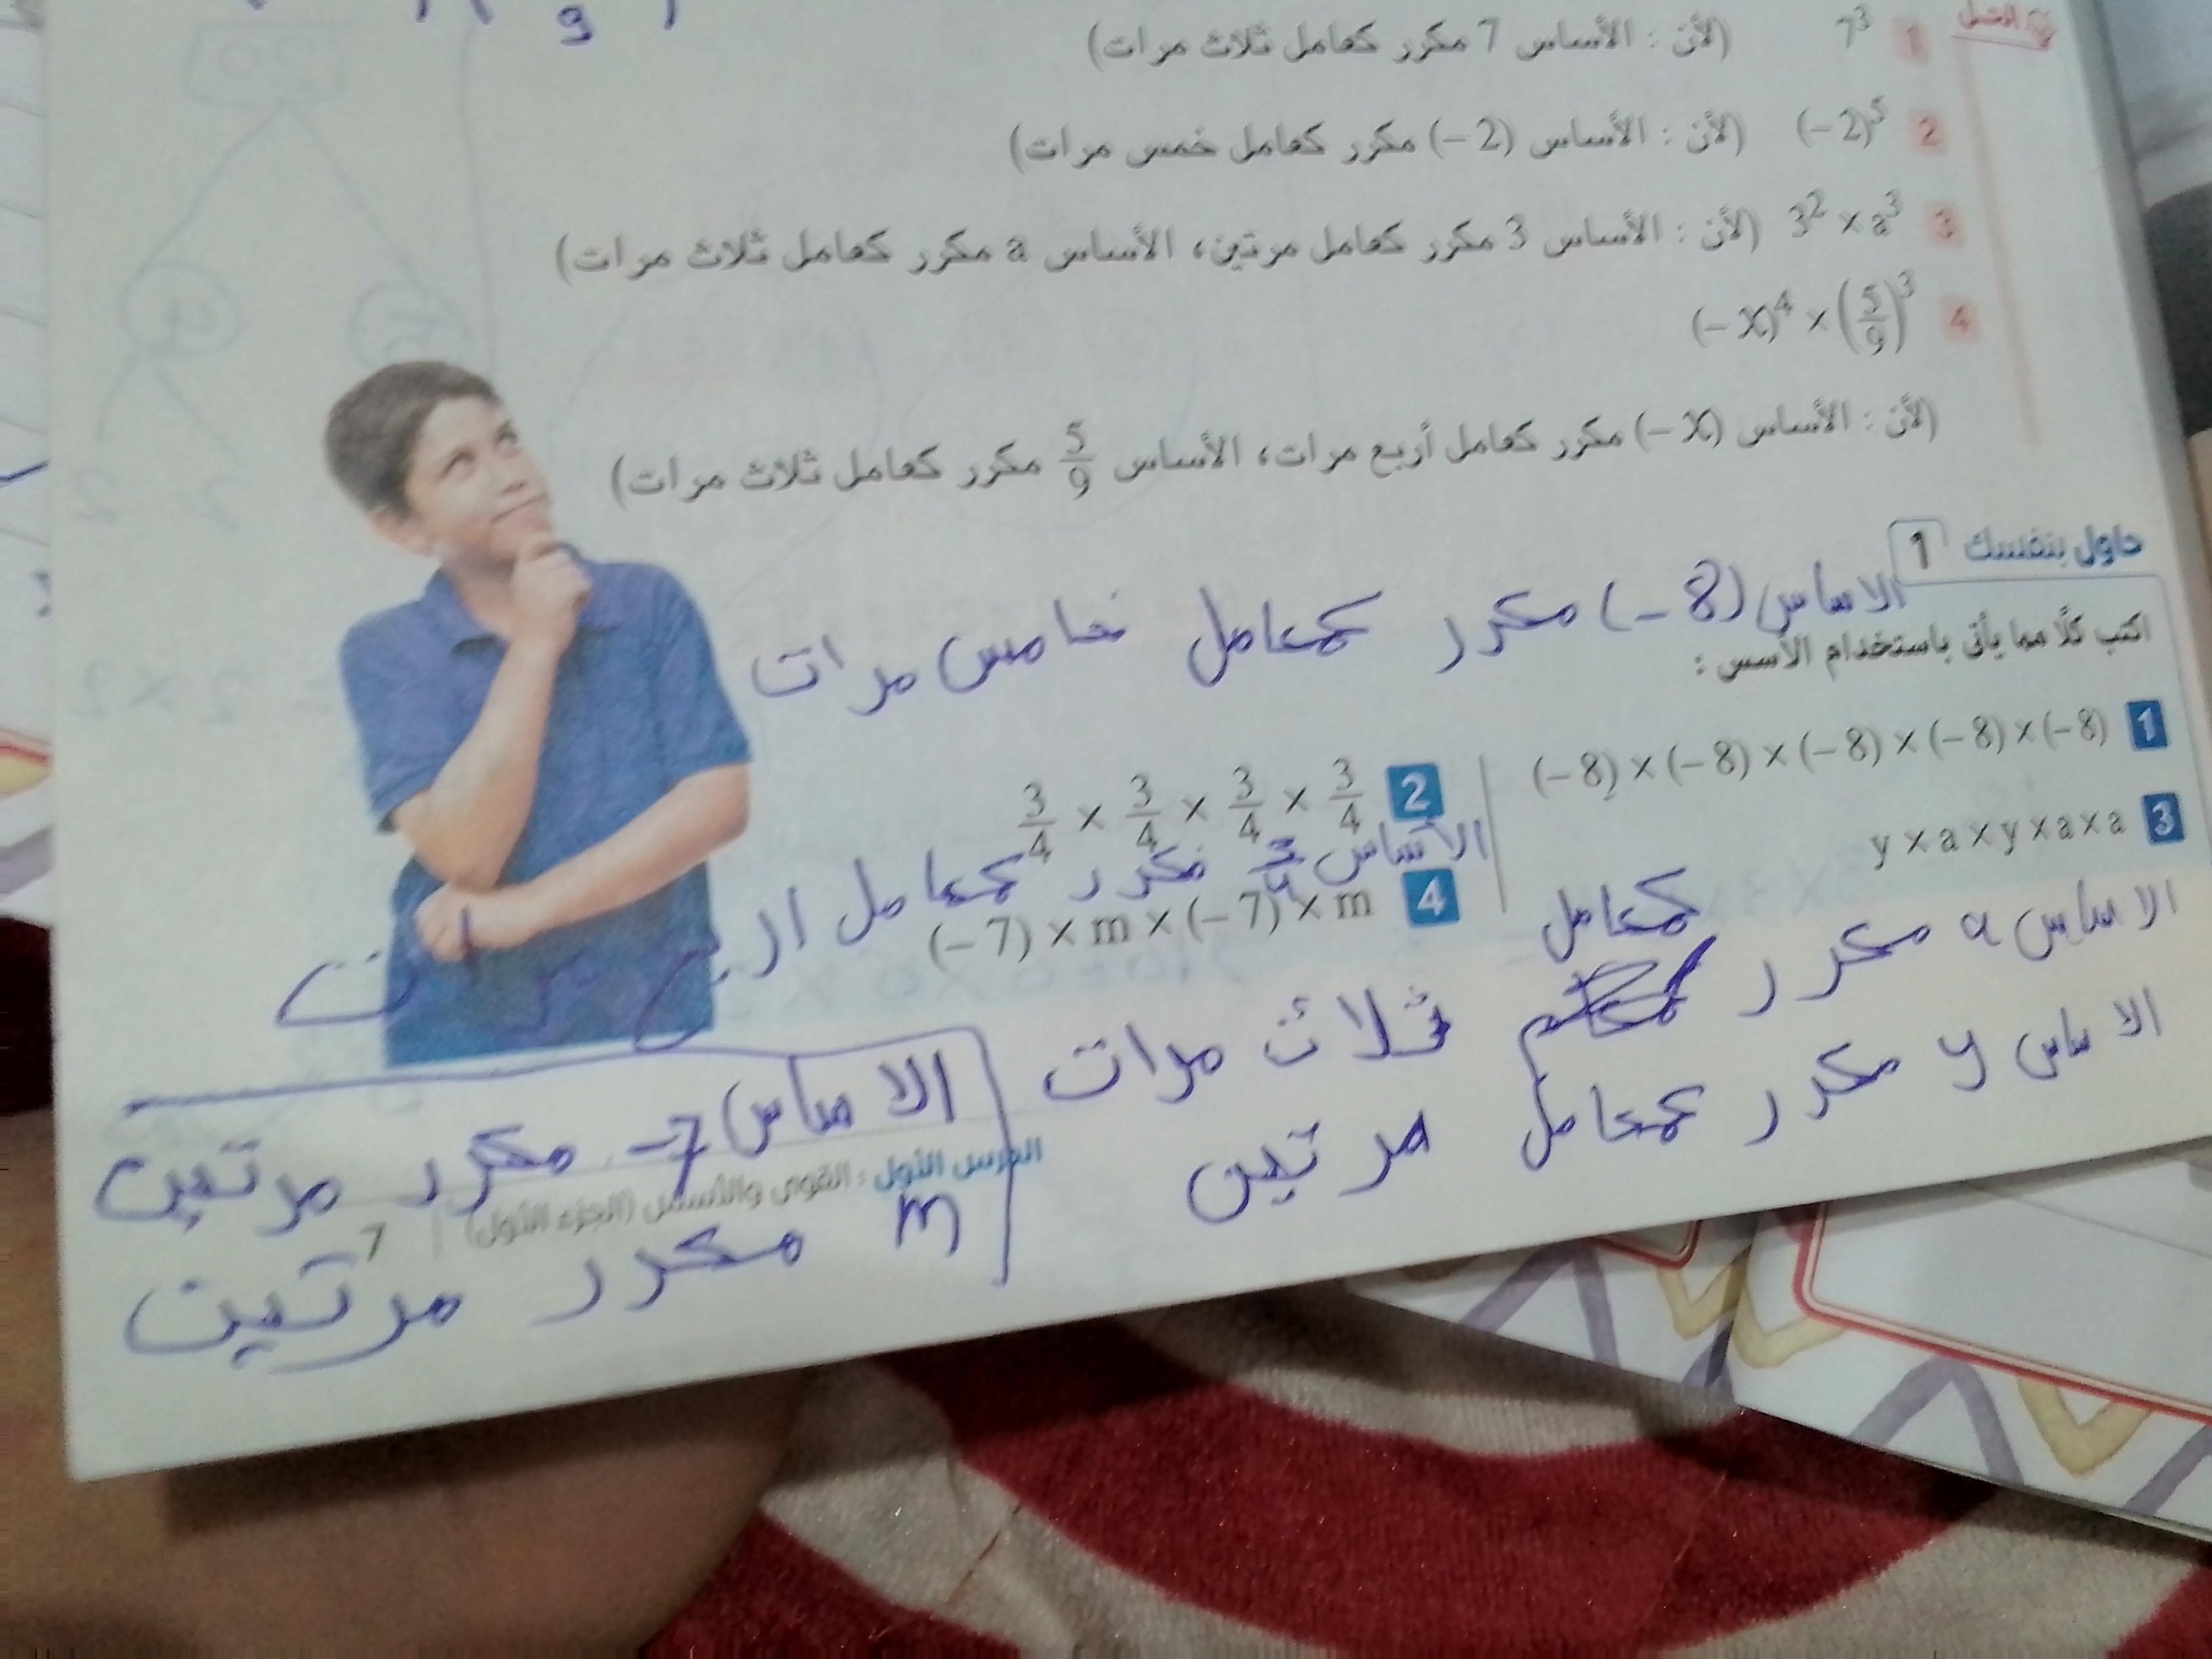 الحل
1 7³ (لأن : الأساس 7 مكرر كعامل ثلاث مرات)
2 (–2)⁵ (لأن : الأساس (–2) مكرر كعامل خمس مرات)
3 3² × a³ (لأن : الأساس 3 مكرر كعامل مرتين، الأساس a مكرر كعامل ثلاث مرات)
4 (–X)⁴ × (5/9)³
(لأن : الأساس (–X) مكرر كعامل أربع مرات، الأساس 5/9 مكرر كعامل ثلاث مرات)
حاول بنفسك 1
الاساس (–8) مكرر كمعامل خامس مرات
اكتب كلًا مما يأتى باستخدام الأسس :
1 (–8) × (–8) × (–8) × (–8) × (–8)
2 3/4 × 3/4 × 3/4 × 3/4
الأساس 3/4 مكرر كمعامل اربع مرات
3 y × a × y × a × a
4 (–7) × m × (–7) × m
كمعامل
الاساس a مكرر ثلاث مرات
الاساس y مكرر كمعامل مرتين
الاساس –7 مكرر مرتين
m مكرر مرتين
الدرس الأول : القوى والأسس (الجزء الأول) 7